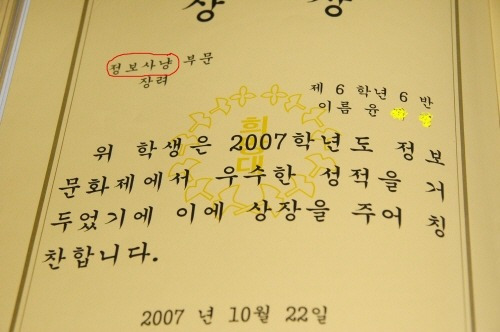 상 장
정보사냥 부문
장려
제 6 학년 6 반
이름 윤
위 학생은 2007학년도 정보
문화제에서 우수한 성적을 거
두었기에 이에 상장을 주어 칭
찬합니다.
2007 년 10월 22일